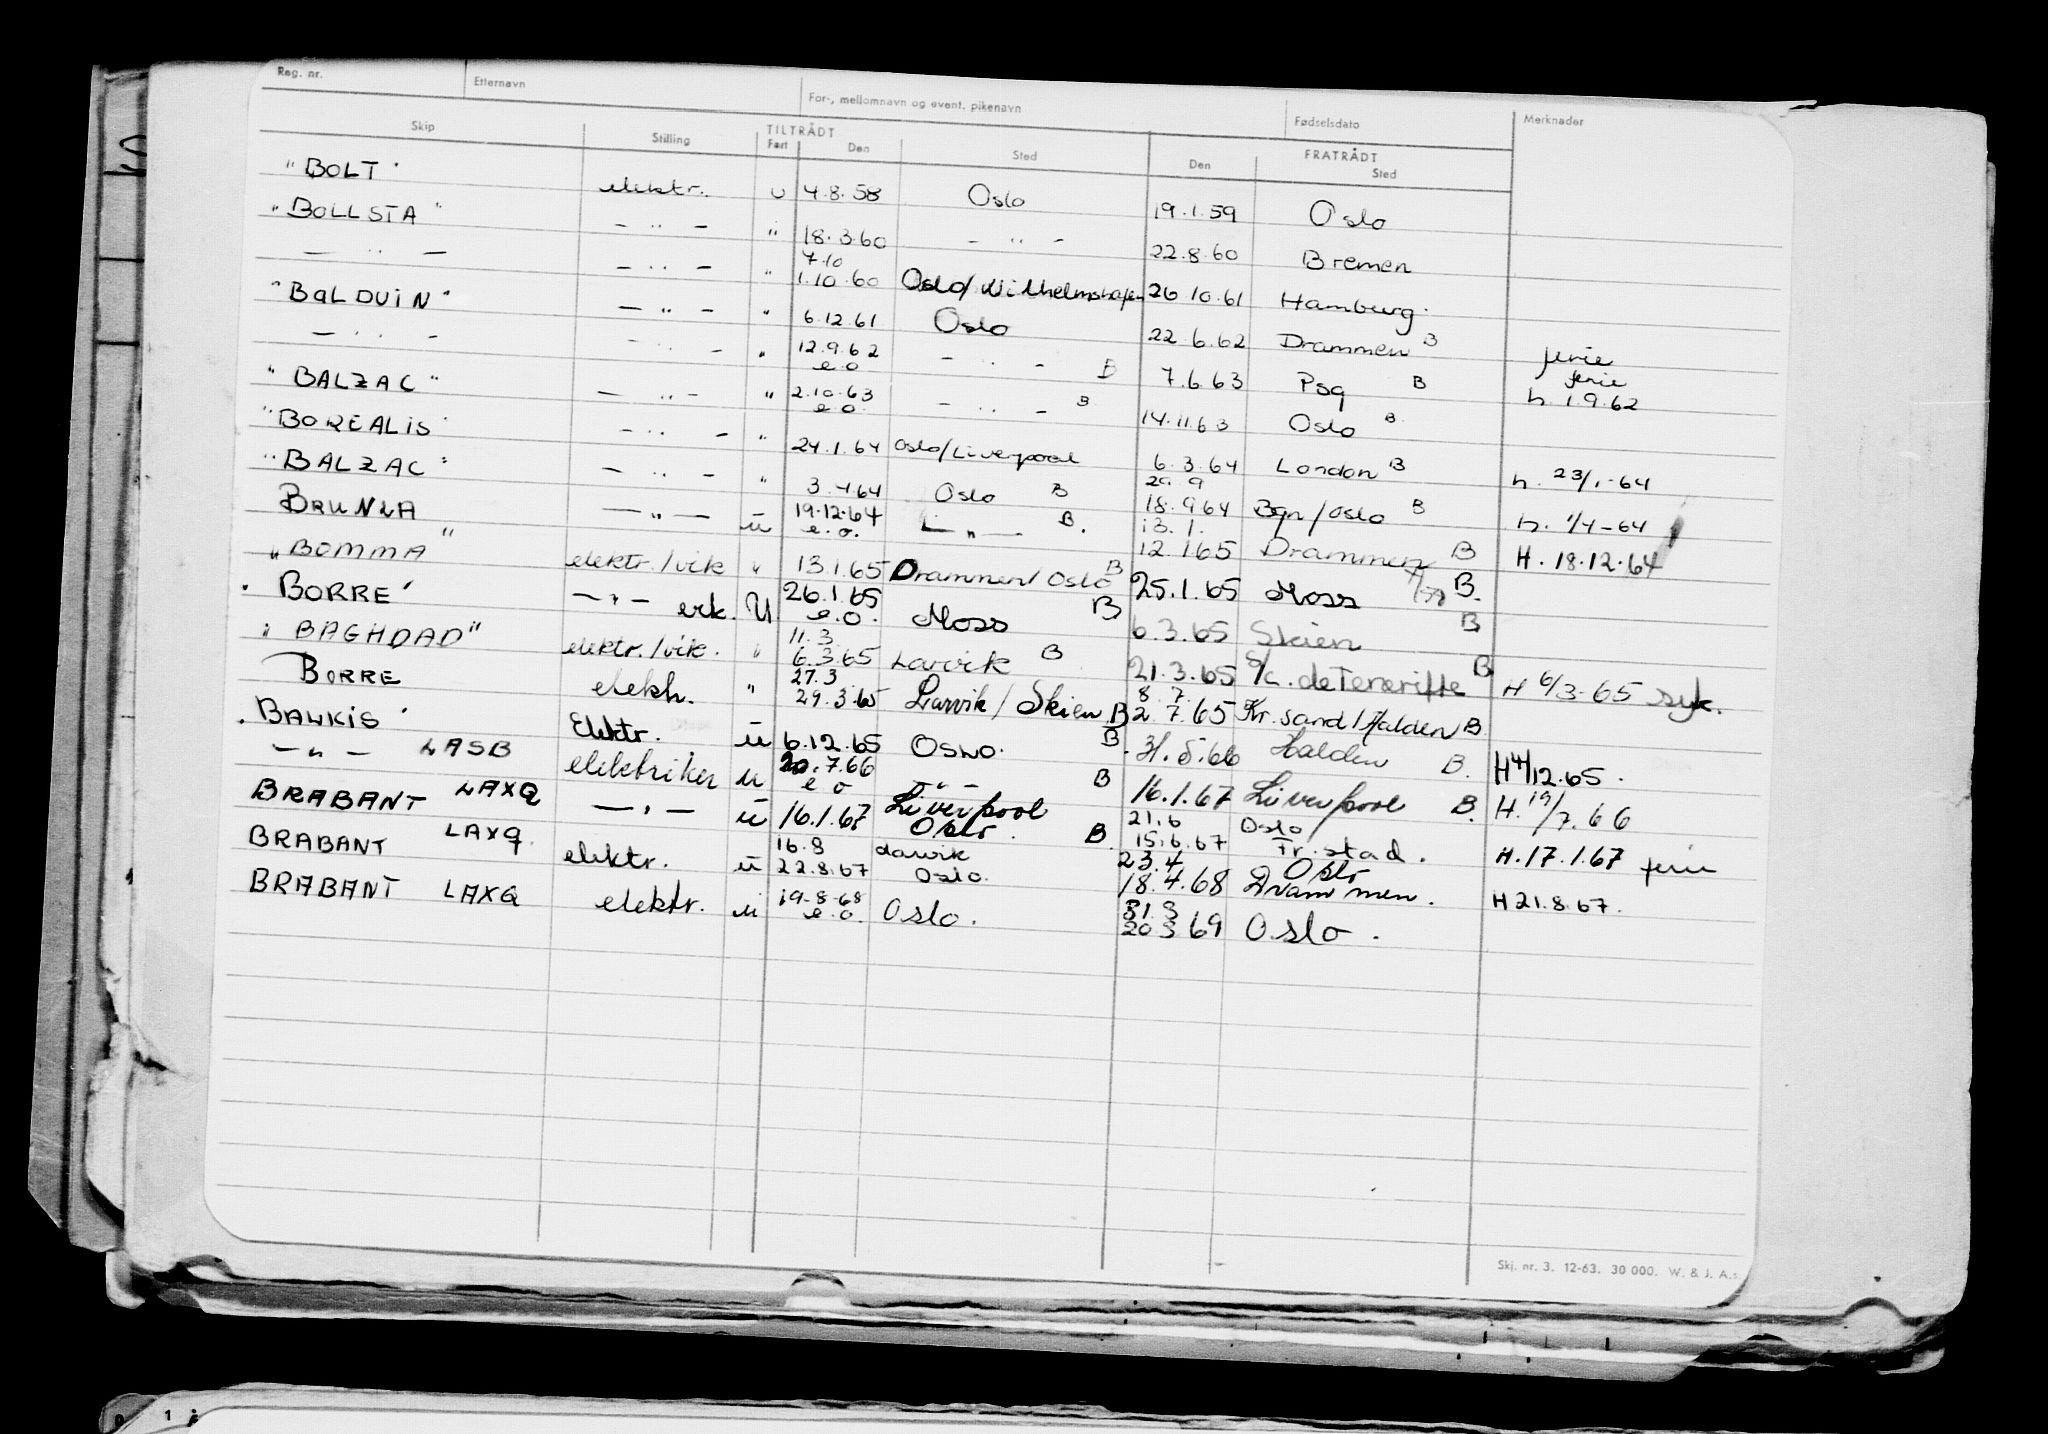 Reg. nr. Etternavn For-, mellomnavn og event. pikenavn Fødselsdato Merknader
Skip Stilling TILTRÅDT FRATRÅDT
Fart Den Sted Den Sted
"BOLT" elektr. u 4.8.58 Oslo 19.1.59 Oslo
"BOLLSTA" — " — " 18.3.60 — " — 22.8.60 Bremen
— " — — " — " 7.10 1.10.60 Oslo/Wilhelmshafen 26.10.61 Hamburg.
"BALDUIN" — " — " 6.12.61 Oslo 22.6.62 Drammen B ferie
— " — — " — " 12.9.62 e.o. — " — B 7.6.63 Psg B ferie h. 1.9.62
"BALZAC" — " — " 2.10.63 e.o. — " — B 14.11.63 Oslo B
"BOREALIS" — " — " 24.1.64 Oslo/Liverpool 6.3.64 London B h. 23/1-64
"BALZAC" — " — " 3.4.64 Oslo B 29.9 18.9.64 Bgn/Oslo B h. 1/4-64
BRUNLA — " — u 19.12.64 e.o. — " — B. 13.1. 12.1.65 Drammen B H. 18.12.64
"BOMMA" elektr./vik " 13.1.65 Drammen/Oslo B 25.1.65 Moss B.
"BORRE" — " — vik. U 26.1.65 e.o. Moss B 6.3.65 Skien B
"BAGHDAD" elektr./vik. " 11.3 6.3.65 Larvik B 21.3.65 S/C. de Teneriffe B H 6/3-65 syk.
BORRE elektr. " 27.3 29.3.65 Larvik/Skien B 8.7. 2.7.65 Kr.sand/Halden B
"BALKIS" Elektr. u 6.12.65 Oslo. B 31.5.66 Halden B. H 4/12.65.
— " — LASB elektriker u 20.7.66 e o — " — B 16.1.67 Liverpool B. H. 19/7.66
BRABANT LAXQ — " — u 16.1.67 Liverpool Oslo. B. 21.6 15.6.67 Oslo Fr.stad. H. 17.1.67 ferie
BRABANT LAXQ. elektr. u 16.8 22.8.67 Larvik Oslo. 23.4 18.4.68 Oslo Drammen. H 21.8.67.
BRABANT LAXQ elektr. u 19.8.68 e.o. Oslo. 31.3 20.3.69 Oslo.
Skj. nr. 3. 12-63. 30 000. W. & J. A.s